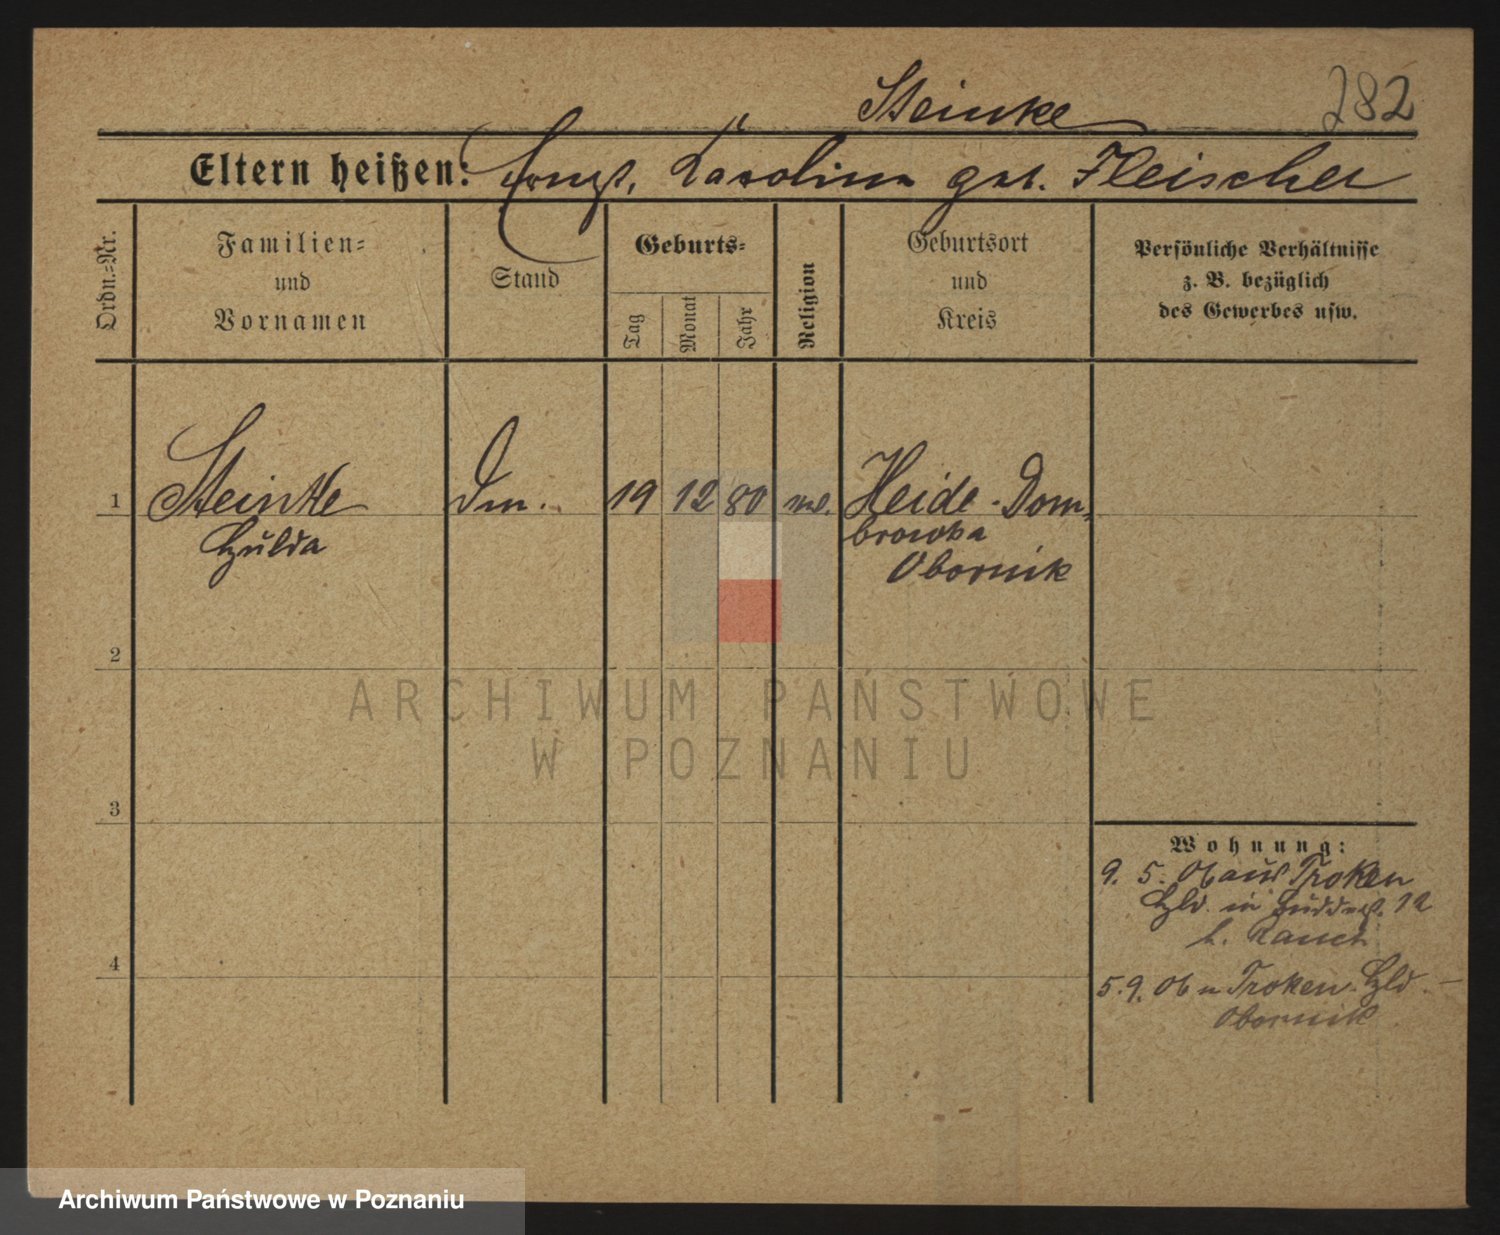 Steinke
282
Eltern heißen: Ernst, Karolina geb. Fleischer
Ordn.=Nr.
Familien=
und
Vornamen
Stand
Geburts=
Tag
Monat
Jahr
Religion
Geburtsort
und
Kreis
Persönliche Verhältnisse
z. B. bezüglich
des Gewerbes usw.
1
Steinke
Hulda
19
12
80
Heide-Dom=
browka
Obornik
2
3
4
Wohnung:
9. 5. 06 aus
in 12
b. Rauch
5.9. 06 n
Obornik
ARCHIWUM PAŃSTWOWE
W POZNANIU
Archiwum Państwowe w Poznaniu